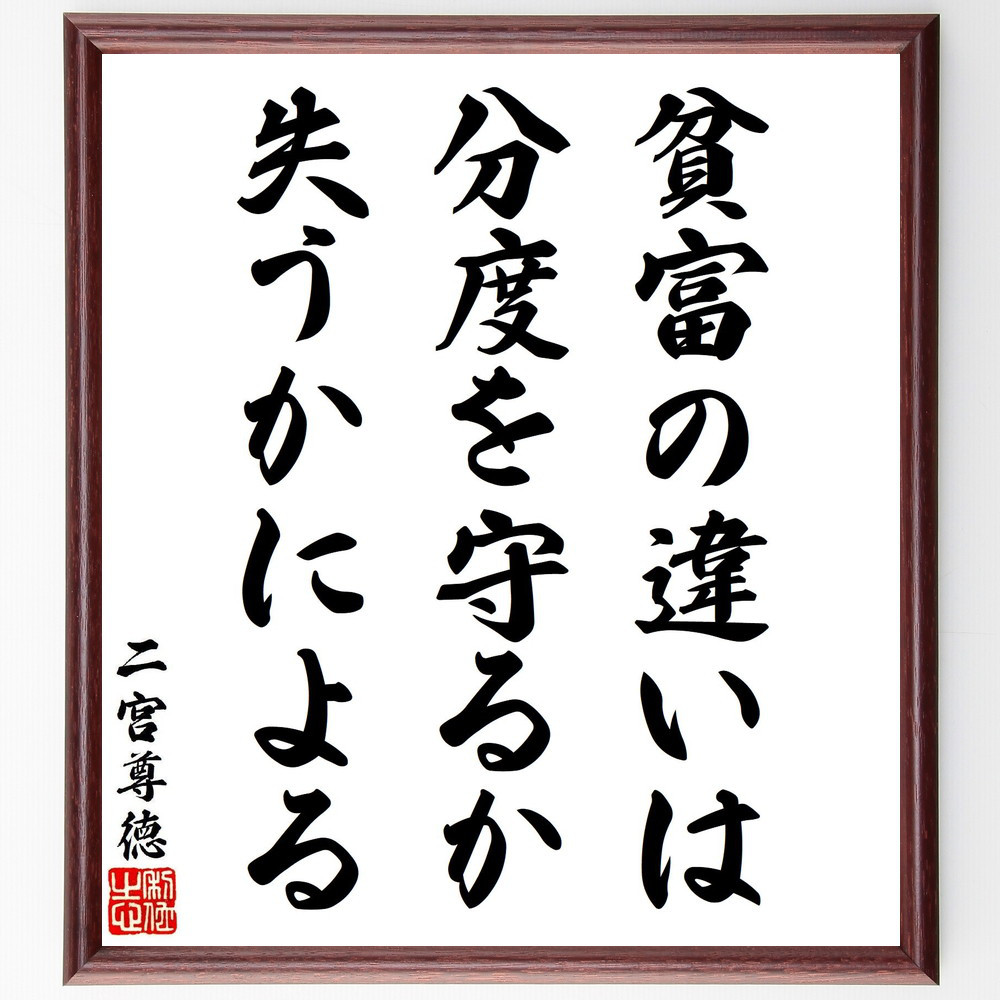 貧富の違いは
分度を守るか
失うかによる
二宮尊徳